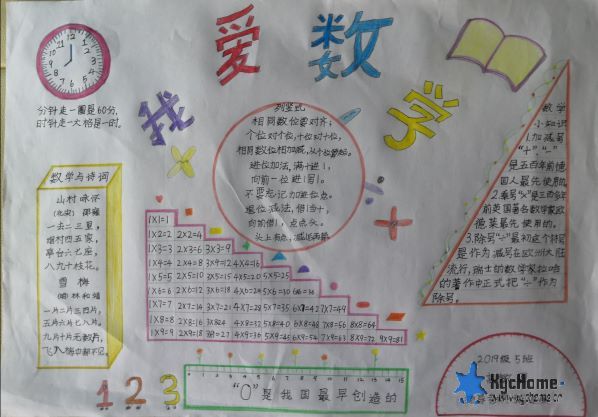 我爱数学
12
11
1
10
2
9
3
8
4
7
5
6
分针走一圈是60分,
时针走一大格是一时。
数学与诗词
山村咏怀
(北宋) 邵雍
一去二三里,
烟村四五家,
亭台六七座,
八九十枝花。
雪梅
(明) 林和靖
一片二片三四片,
五片六片七八片。
九片十片无数片,
飞入梅中都不见。
列竖式
相同数位要对齐;
个位对个位,十位对十位,
相同数位相加减,从个位算起。
进位加法,满十进1,
向前一位进1写1。
不要忘记加进位点。
退位减法,借1当十,
向前借1,点点头。
头上有点,减后再算
数学
小知识
1.加减号
“+”“-”
是五百年前德
国人最先使用的。
2.乘号“×”是三百多年
前英国著名数学家欧
德莱最先使用的。
3.除号“÷”最初这个符号
是作为减号在欧洲大陆
流行,瑞士的数学家拉哈
的著作中正式把“÷”作为
除号。
1×1=1
1×2=2 2×2=4
1×3=3 2×3=6 3×3=9
1×4=4 2×4=8 3×4=12 4×4=16
1×5=5 2×5=10 3×5=15 4×5=20 5×5=25
1×6=6 2×6=12 3×6=18 4×6=24 5×6=30 6×6=36
1×7=7 2×7=14 3×7=21 4×7=28 5×7=35 6×7=42 7×7=49
1×8=8 2×8=16 3×8=24 4×8=32 5×8=40 6×8=48 7×8=56 8×8=64
1×9=9 2×9=18 3×9=27 4×9=36 5×9=45 6×9=54 7×9=63 8×9=72 9×9=81
123
“0”是我国最早创造的
2019级5班
XycHome